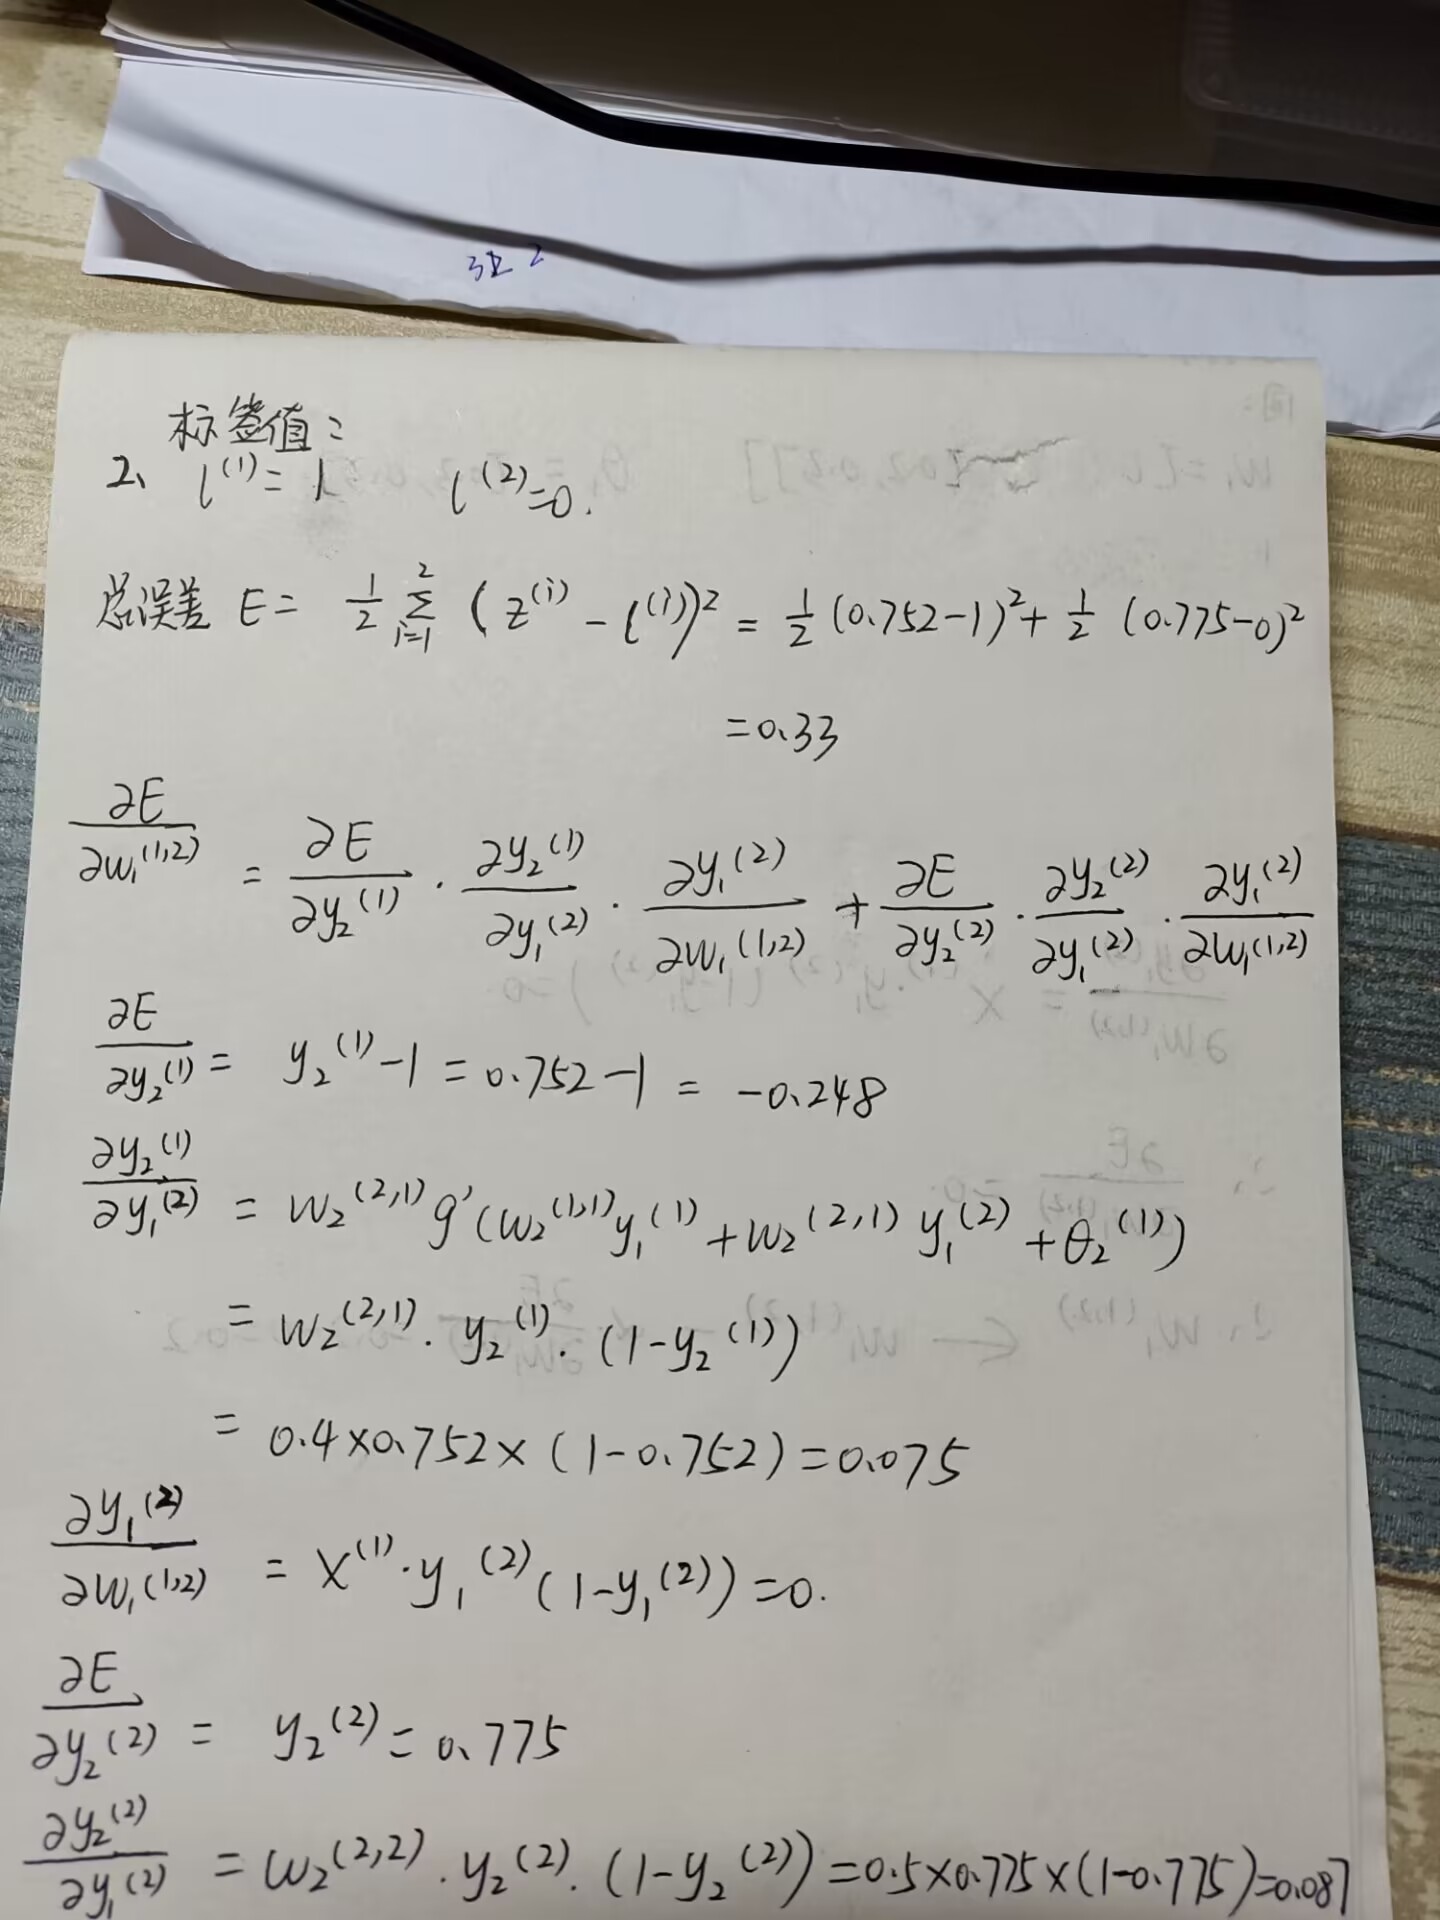 标签值：
2、 l^{(1)} = 1 l^{(2)} = 0.
总误差 E = \frac{1}{2} \sum_{i=1}^{2} (z^{(i)} - l^{(i)})^2 = \frac{1}{2} (0.752-1)^2 + \frac{1}{2} (0.775-0)^2
= 0.33
\frac{∂E}{∂w_1^{(1,2)}} = \frac{∂E}{∂y_2^{(1)}} · \frac{∂y_2^{(1)}}{∂y_1^{(2)}} · \frac{∂y_1^{(2)}}{∂w_1^{(1,2)}} + \frac{∂E}{∂y_2^{(2)}} · \frac{∂y_2^{(2)}}{∂y_1^{(2)}} · \frac{∂y_1^{(2)}}{∂w_1^{(1,2)}}
\frac{∂E}{∂y_2^{(1)}} = y_2^{(1)} - 1 = 0.752 - 1 = -0.248
\frac{∂y_2^{(1)}}{∂y_1^{(2)}} = w_2^{(2,1)} g'(w_2^{(1,1)} y_1^{(1)} + w_2^{(2,1)} y_1^{(2)} + θ_2^{(1)})
= w_2^{(2,1)} · y_2^{(1)} · (1 - y_2^{(1)})
= 0.4×0.752×(1-0.752) = 0.075
\frac{∂y_1^{(2)}}{∂w_1^{(1,2)}} = x^{(1)} · y_1^{(2)} (1 - y_1^{(2)}) = 0.
\frac{∂E}{∂y_2^{(2)}} = y_2^{(2)} = 0.775
\frac{∂y_2^{(2)}}{∂y_1^{(2)}} = w_2^{(2,2)} · y_2^{(2)} · (1 - y_2^{(2)}) = 0.5×0.775×(1-0.775) = 0.087